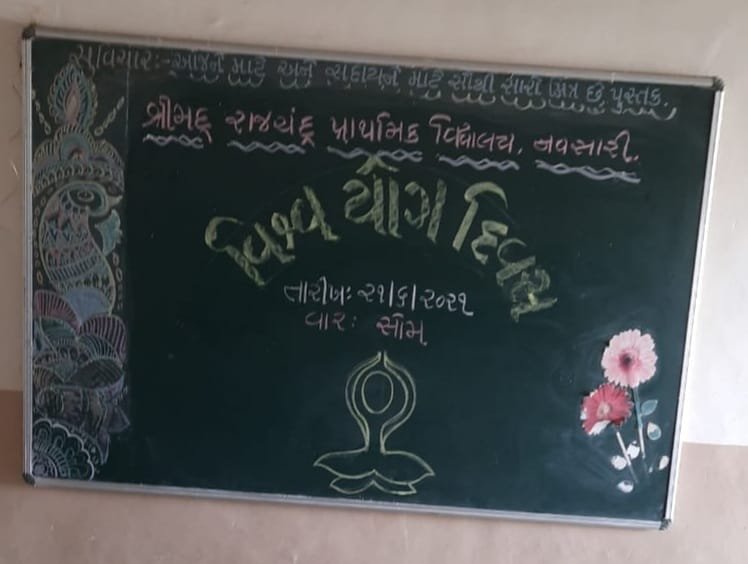 સુવિચાર:- આજને માટે અને સદાયને માટે સૌથી સારો મિત્ર છે પુસ્તક.
શ્રીમદ્ રાજચંદ્ર પ્રાથમિક વિદ્યાલય, નવસારી.
વિશ્વ યોગ દિવસ
તારીખ: ૨૧/૬/૨૦૨૧
વાર: સોમ